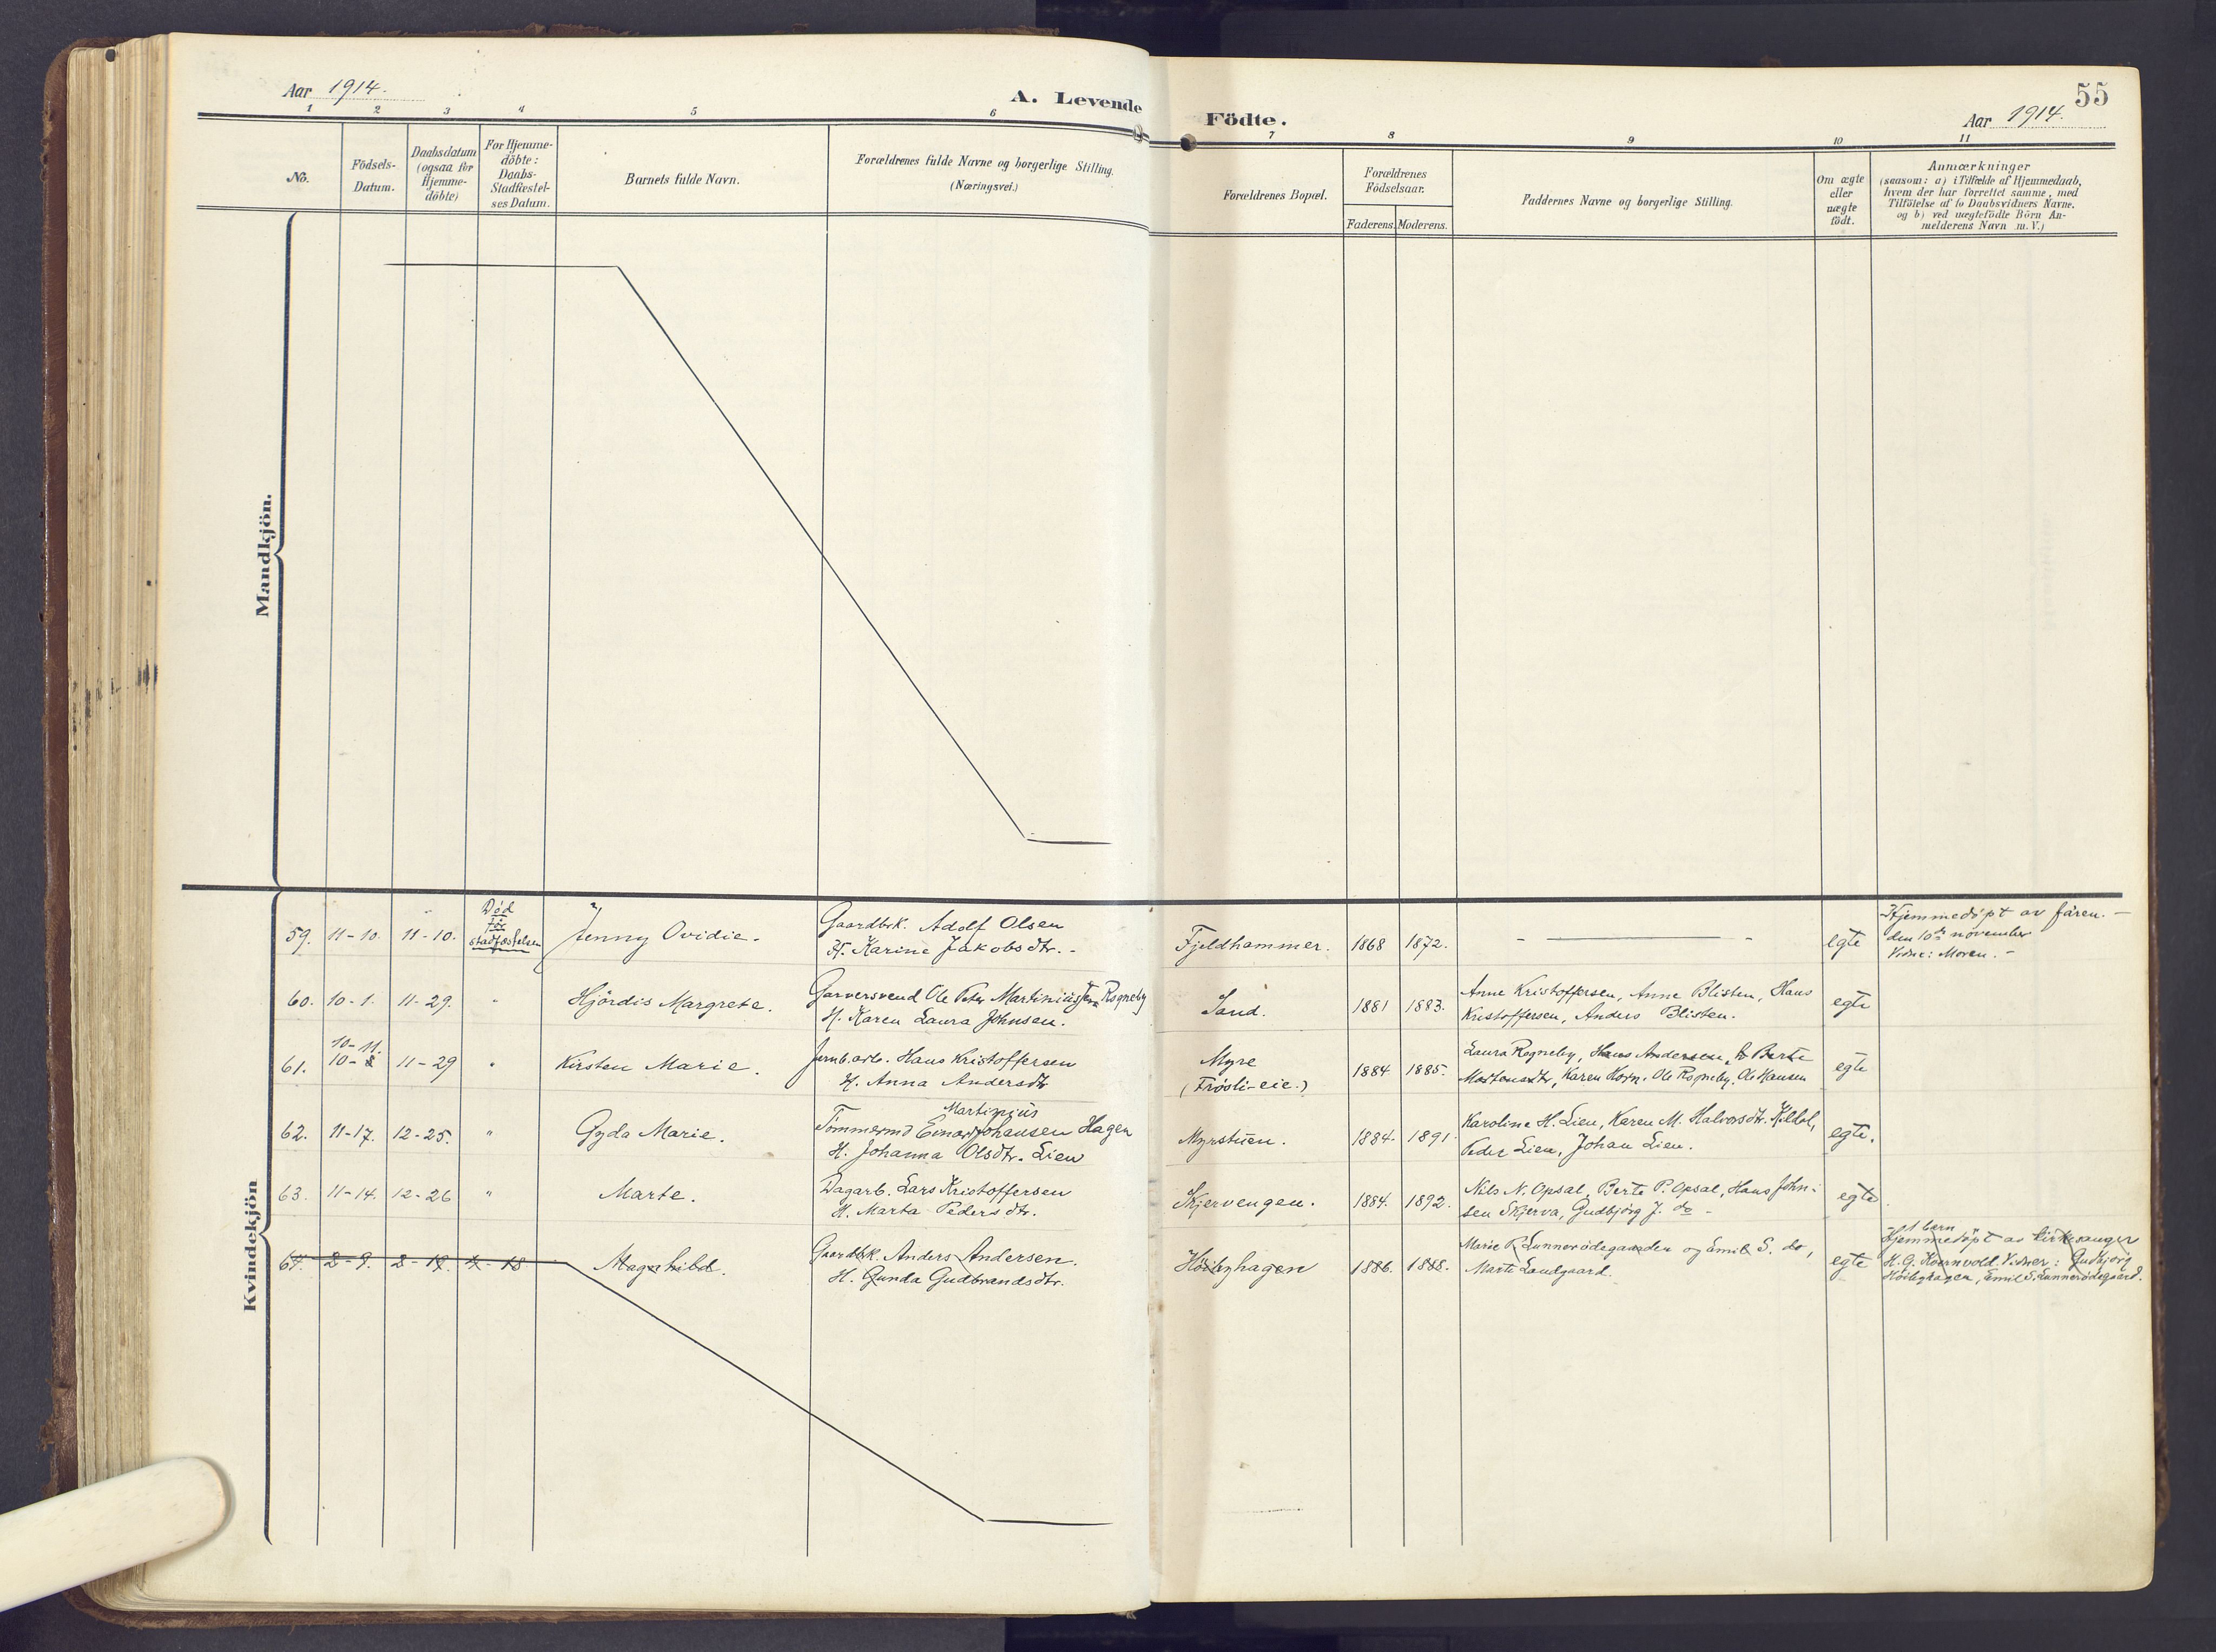 Aar 1914.
A. Levende Födte.
55
Aar 1914.
1 2 3 4 5 6 7 8 9 10 11
No.
Födsels-
Datum.
Daabsdatum
(ogsaa for
Hjemme-
döbte)
For Hjemme-
döbte:
Daabs-
Stadfæstel-
ses Datum.
Barnets fulde Navn.
Forældrenes fulde Navne og borgerlige Stilling.
(Næringsvei.)
Forældrenes Bopæl.
Forældrenes
Födselsaar.
Faderens. Moderens.
Faddernes Navne og borgerlige Stilling.
Om ægte
eller
uægte
födt.
Anmærkninger
(saasom: a) i Tilfælde af Hjemmedaab,
hvem der har forrettet samme, med
Tilföielse af to Daabsvidners Navne.
og b) ved uægtefödte Börn An-
melderens Navn m. V.)
Mandkjön.
Kvindekjön
59. 11-10. 11-10.
Död
för
stadfæstelsen
Jenny Ovidie.
Gaardbrk. Adolf Olsen
H. Karine Jakobsdtr. -
Fjeldhammer. 1868 1872. - — - egte
Hjemmedöpt av faren. -
den 10de november
Vidne: Moren. -
60. 10-1. 11-29. " Hjördis Margrete.
Garversvend Ole Peter Martiniussen Rogneby
H. Karen Laura Johnsen.
Sand. 1881 1883.
Anne Kristoffersen, Anne Blisten, Hans
Kristoffersen, Anders Blisten.
egte
10-11.
61. 10-8 11-29 " Kirsten Marie.
Jernb.arb. Hans Kristoffersen
H. Anna Andersdtr
Myre
(Frösli-eie.)
1884 1885.
Laura Rogneby, Hans Andersen, Berte
Mortensdtr, Karen Horn, Ole Rogneby, Ole Hansen
egte
62. 11-17. 12-25. " Gyda Marie.
Martinius
Tömmermd Einar Johansen Hagen
H. Johanna Olsdtr. Lien
Myrstuen. 1884. 1891.
Karoline H. Lien, Karen M. Halvorsdtr. Kildal,
Peder Lien, Johan Lien.
egte.
63. 11-14. 12-26 " Marte.
Dagarb. Lars Kristoffersen
H. Marta Pedersdtr.
Skjervengen. 1884. 1892.
Nils N. Opsal, Berte P. Opsal, Hans John-
sen Skjerva, Gudbjörg J. do -
egte
64. 2-9. 2-19. 4-18 Magnhild.
Gaardbrk. Anders Andersen.
H. Gunda Gudbrandsdtr.
Höibyhagen 1886. 1888.
Marie R. Lunnerödegaarden og Emil S. do,
Marte Landgaard.
egte
barn
Hjemmedöpt av kirkesanger
H. G. Kjernvold. Vidner: Gudbjörg
Höibyhagen, Emil S. Lunnerödegaard.